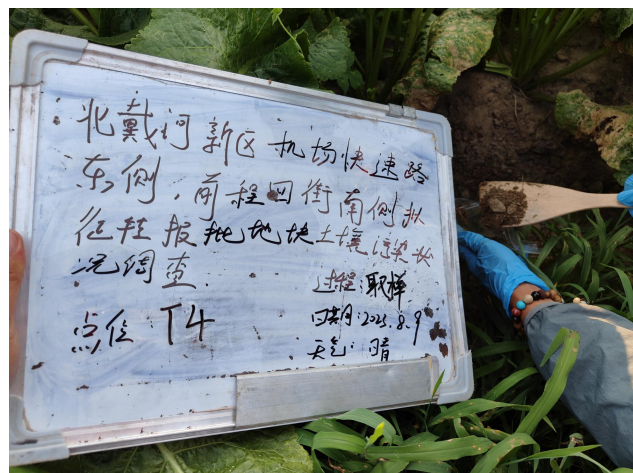 北戴河新区机场快速路
东侧，前程四街南侧拟
征转报批地块土壤污染状
况调查.
过程:取样
点位:T4
日期:2023.8.9
天气:晴